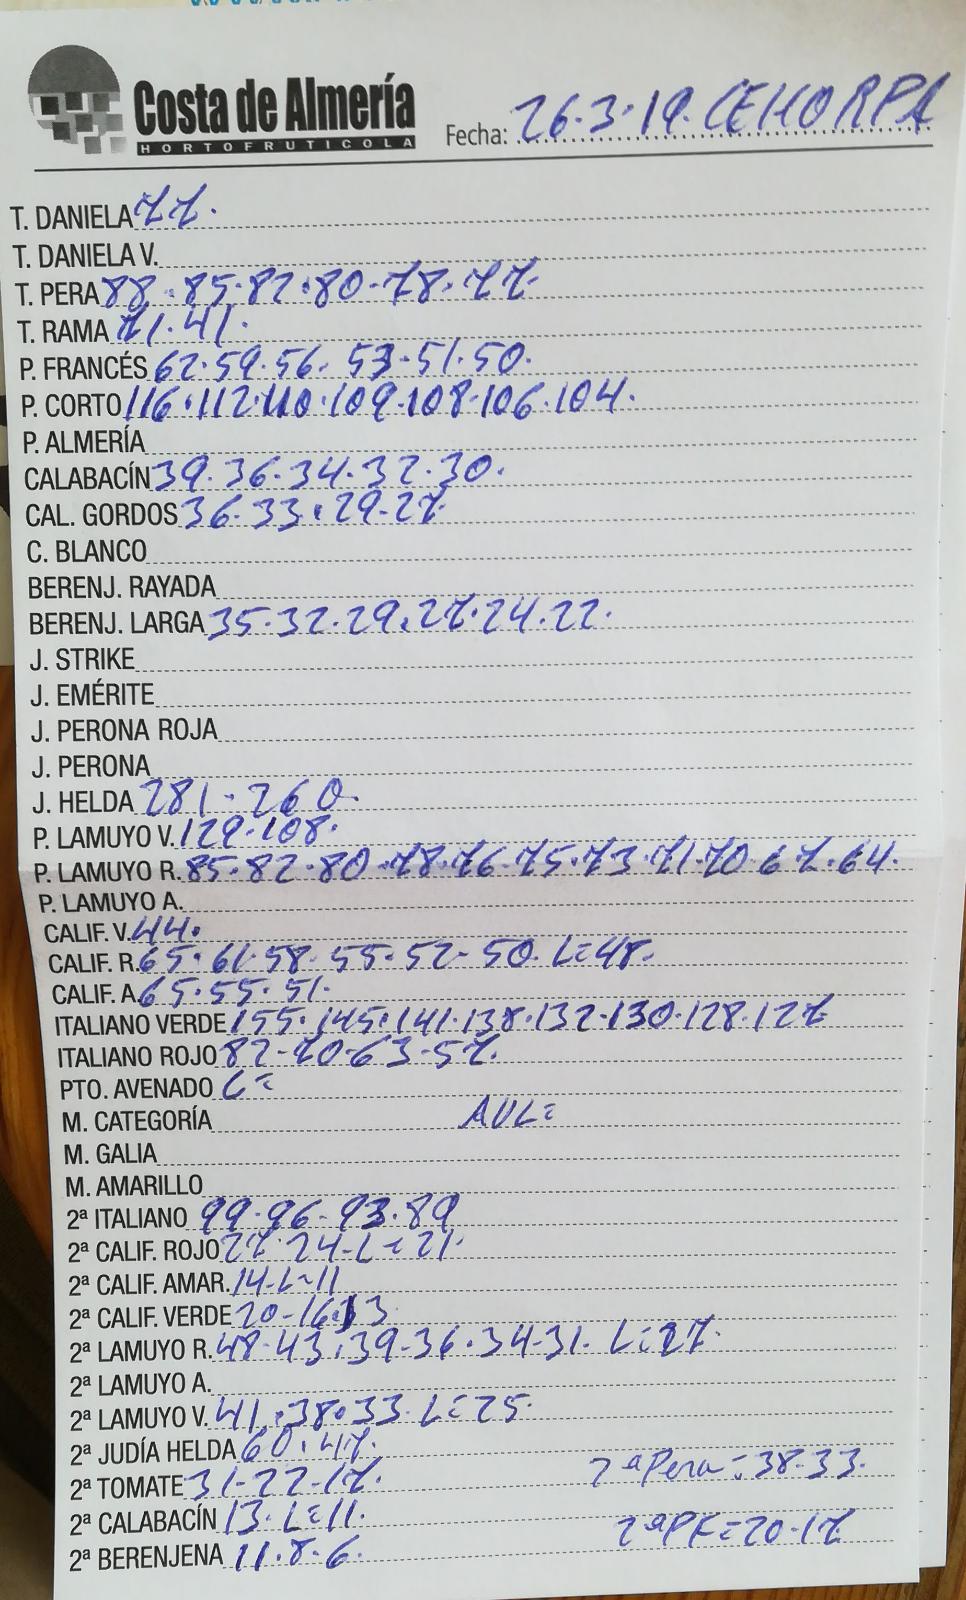 Costa de Almería
HORTOFRUTICOLA
Fecha: 26.3.19. CEHORPA
T. DANIELA 77.
T. DANIELA V.
T. PERA 88.85.82.80.78.77.
T. RAMA 71.41.
P. FRANCÉS 62.59.56. 53-51.50.
P. CORTO 116.112.110.109.108.106.104.
P. ALMERÍA
CALABACÍN 39.36.34.32.30.
CAL. GORDOS 36.33.29-27
C. BLANCO
BERENJ. RAYADA
BERENJ. LARGA 35.32.29.27.24.22.
J. STRIKE
J. EMÉRITE
J. PERONA ROJA
J. PERONA
J. HELDA 281-260.
P. LAMUYO V. 129-108.
P. LAMUYO R. 85.82.80.78.76.75.73.71.70 67.64.
P. LAMUYO A.
CALIF. V. 44.
CALIF. R. 65.61.58.55.52-50. L=48.
CALIF. A. 65.55.51.
ITALIANO VERDE 155.145.141.138.132.130.128.127
ITALIANO ROJO 82-70-63-57.
PTO. AVENADO L=
M. CATEGORÍA AUL=
M. GALIA
M. AMARILLO
2ª ITALIANO 99.96-93.89
2ª CALIF. ROJO 27 24-L=21.
2ª CALIF. AMAR. 14-L=11
2ª CALIF. VERDE 20-16.13
2ª LAMUYO R. 48-43.39-36.34-31. L=27.
2ª LAMUYO A.
2ª LAMUYO V. 41.38.33. L=25.
2ª JUDÍA HELDA 60.47.
2ª TOMATE 31-22-17. 2ªPera=38-33.
2ª CALABACÍN 13. L=11.
2ªPF=20-17
2ª BERENJENA 11.8-6.